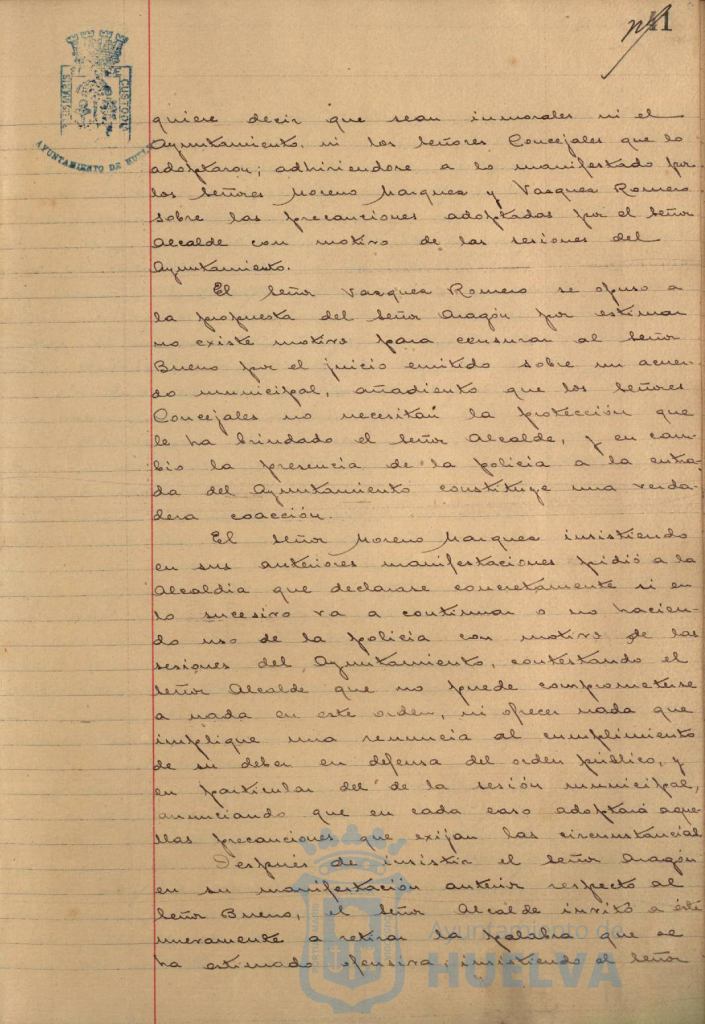 41
PORTUS MARIS
CUSTODIA
AYUNTAMIENTO DE HUELVA
quiere decir que sean inmorales ni el
Ayuntamiento, ni los Señores Concejales que lo
adoptaron; adhiriendose a lo manifestado por
los Señores Moreno Marquez y Vazquez Romero
sobre las precauciones adoptadas por el Señor
Alcalde con motivo de las sesiones del
Ayuntamiento.
El Señor Vazquez Romero se opuso a
la propuesta del Señor Aragón por estimar
no existe motivo para censurar al Señor
Bueno por el juicio emitido sobre un acuer-
do municipal, añadiento que los Señores
Concejales no necesitan la protección que
le ha brindado el Señor Alcalde, y en cam-
bio la presencia de la policia a la entra-
da del Ayuntamiento constituye una verda-
dera coacción.
El Señor Moreno Marquez insistiendo
en sus anteriores manifestaciones pidió a la
Alcaldia que declarase concretamente si en
lo sucesivo va a continuar o no hacien-
do uso de la policia con motivo de las
sesiones del Ayuntamiento, contestando el
Señor Alcalde que no puede comprometerse
a nada en este orden, ni ofrecer nada que
implique una renuncia al cumplimiento
de su deber en defensa del orden público, y
en particular del de la sesión municipal,
anunciando que en cada caso adoptará aque-
llas precauciones que exijan las circunstancias
Después de insistir el Señor Aragón
en su manifestación anterior respecto al
Señor Bueno, el Señor Alcalde invitó a éste
nuevamente a retirar la palabra que se
ha estimado ofensiva, insistiendo el Señor
Ayuntamiento de
HUELVA